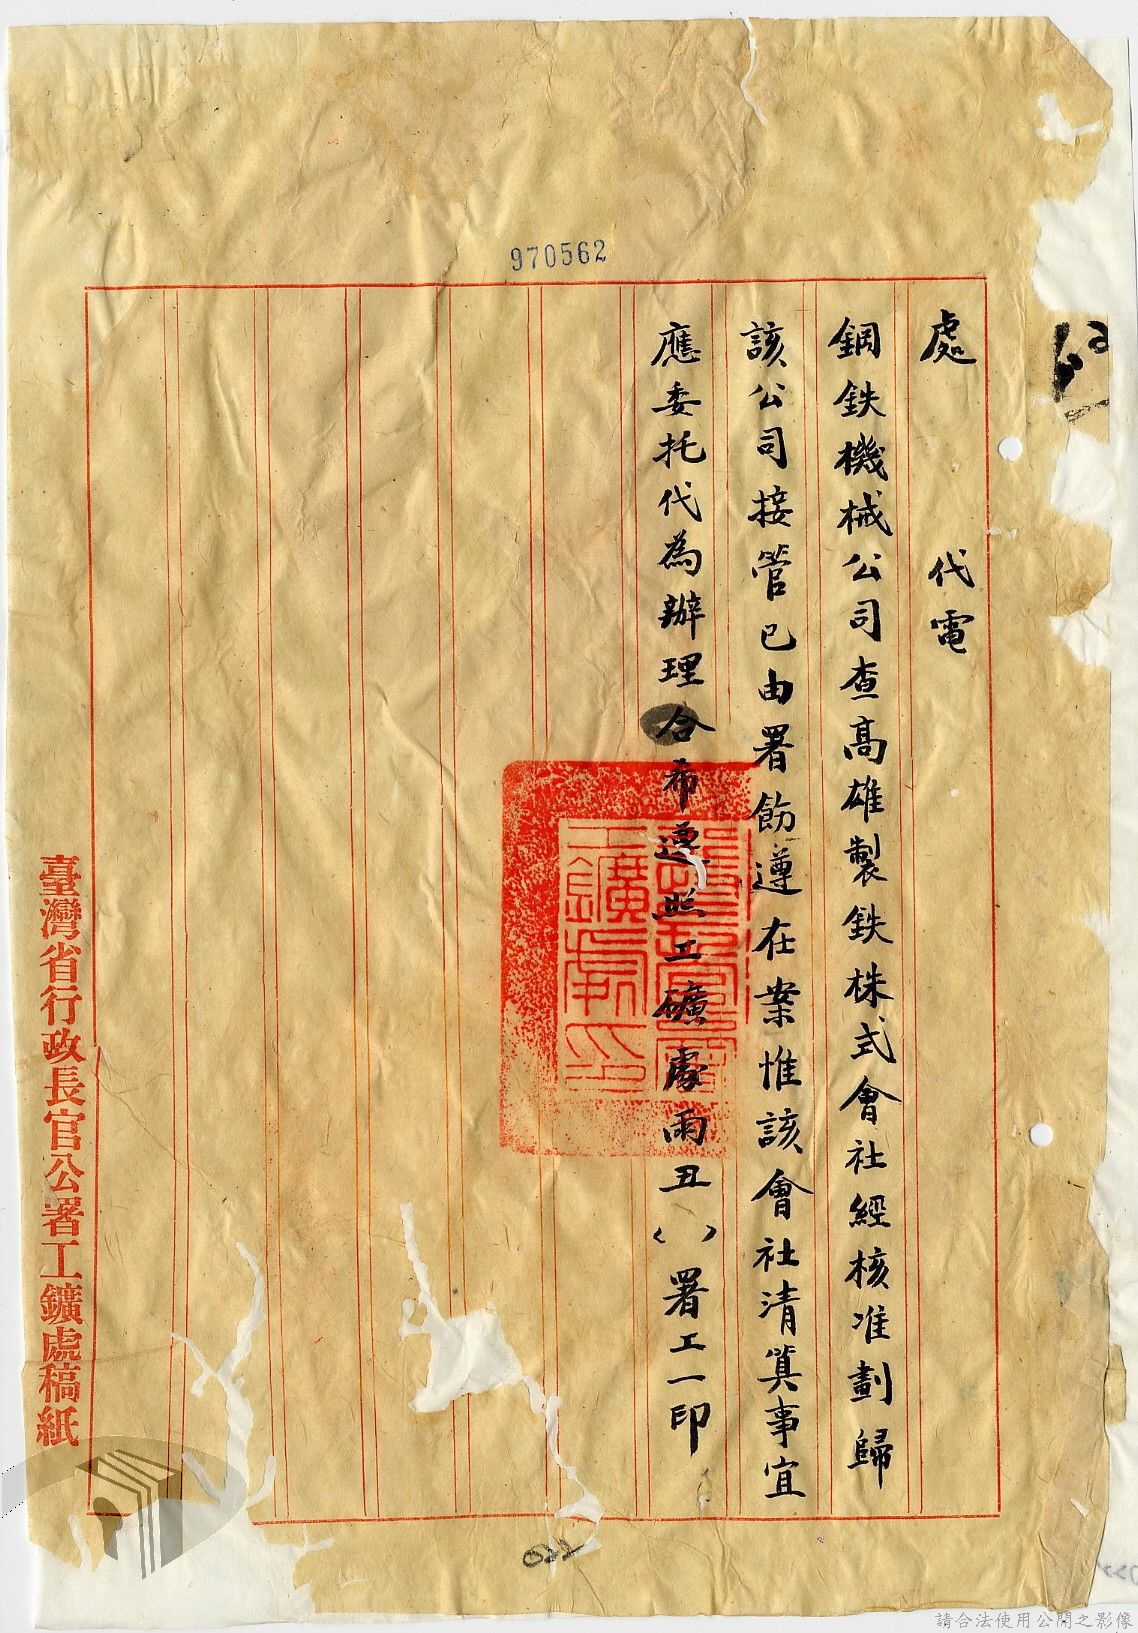 970562
處 代電
鋼鉄機械公司查高雄製鉄株式會社經核准劃歸
該公司接管已由署飭遵在案惟該會社清算事宜
應委托代為辦理合希遵照工礦處雨丑( )署工一印
臺灣省行政長官公署工鑛處稿紙
請合法使用公開之影像